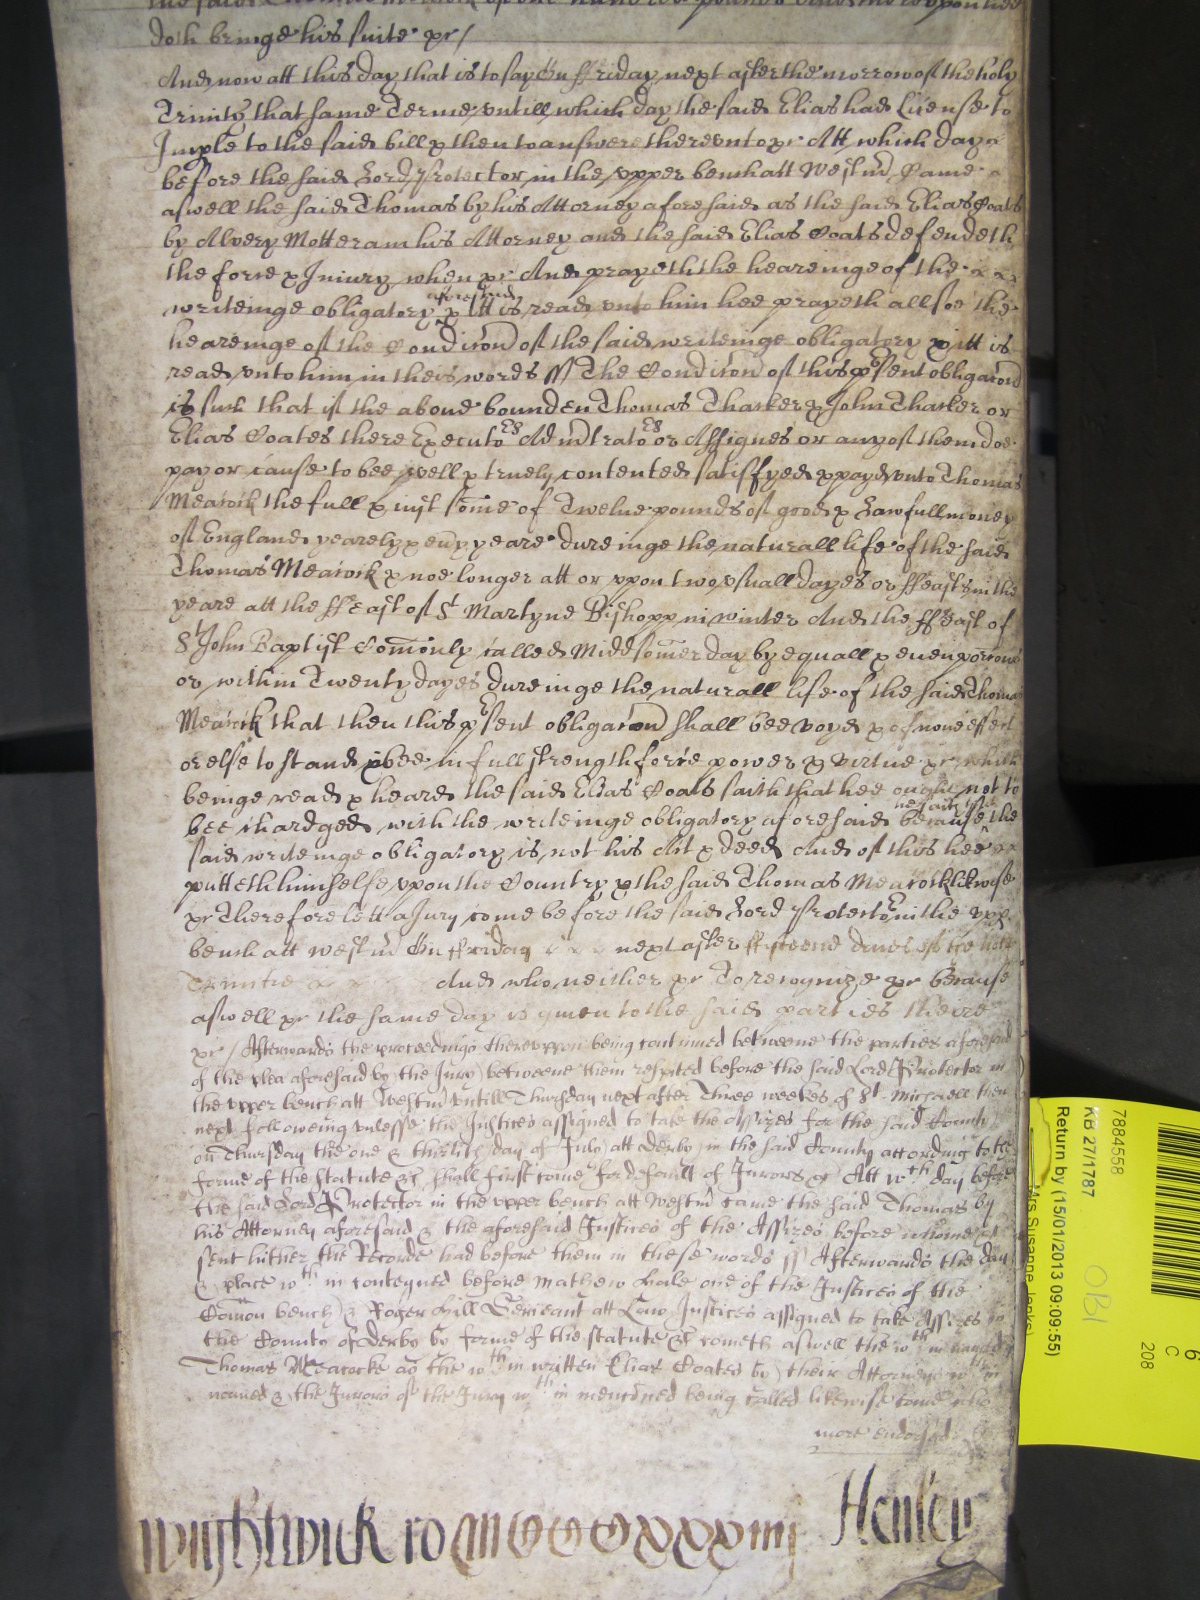 doth bringe his suite &c /
And now att this day that is to say On ffriday next after the morrow of the holy
Trinity that same Terme untill which day the said Elias had License to
Imple to the said bill & then to answere thereunto &c Att which day
before the said Lord Protector in the upper bench att Westmr Came
aswell the said Thomas by his Attorney aforesaid as the said Elias Coats
by Alvery Motteram his Attorney and the said Elias Coats defendeth
the force & Iniury when &c And prayeth the heareinge of the
aforesaid
writeinge obligatory & itt is read unto him hee prayeth allsoe the
heareinge of the Condicon of the said writeinge obligatory & itt is
read unto him in theis words ss The Condicon of this psent obligacon
is such that if the above bounden Thomas Tharker & John Tharker or
Elias Coates there Executors Admtrators or Assignes or any of them doe
pay or cause to bee well & truely contented satisfyed & payd unto Thomas
Meacock the full & iust some of Twelve pounds of good & Lawfull money
of England yearely & every yeare dureinge the naturall life of the said
Thomas Meacock & noe longer att or upon two usuall dayes or ffeasts in the
yeare att the ffeast of St Martyne Bishopp in winter And the ffeast of
St John Baptist Comonly called Middsomer day by equall & even porcons
or within Twenty dayes dureinge the naturall life of the said Thomas
Meacock that then this psent obligacon shall bee voyd & of none effect
or else to stand & bee in full strength force power & virtue &c which
beinge read & heard the said Elias Coats saith that hee ought not to
hee saith that
bee chardged with the writeinge obligatory aforesaid because the
said writeinge obligatory is not his Act & deed And of this hee
putteth himselfe upon the Country & the said Thomas Meacock likwise
&c Therefore lett a Jury come before the said Lord Protector in the upp
bench att Westmr On ffriday next after ffifteene dayes of the holy
Trinitie And who neither &c To recognize &c because
aswell &c the same day is given to the said parties theire
&c / Afterwards the proceedings thereuppon being continued betweene the parties aforesaid
of the plea aforesaid by the Jury betweene them respited before the said Lord Protector in
the upper bench att Westmr untill Thursday next after Three weekes of St Michaell then
next following unlesse the Justices assigned to take the Assizes for the said County
on Thursday the one & thirtith day of July att Derby in the said County according to the
forme of the statute &c shall first come for default of Jurors &c Att wch day before
the said Lord Protector in the upper bench att Westmr came the said Thomas by
his Attorney aforesaid & the aforesaid Justices of the Assizes before whome &c
sent hither the Recorde had before them in these words ss Afterwards the day
& place wthin conteyned before Mathew Hale one of the Justices of the
Comon bench & Roger Hill Serieant att Law Justices assigned to take Assizes in
the County of Derby by forme of the statute &c cometh aswell the wthin named
Thomas Meacocke as the wthin written Elias Coates by their Attorneys wthin
named & the Jurors of the Jury wthin mencioned being called likewise come who
more endorsed
Wightwick ro MCCCCxxxiiij Henley
7884558
KB 27/1787
Return by (15/01/2013 09:09:55)
OB1
C
208
6